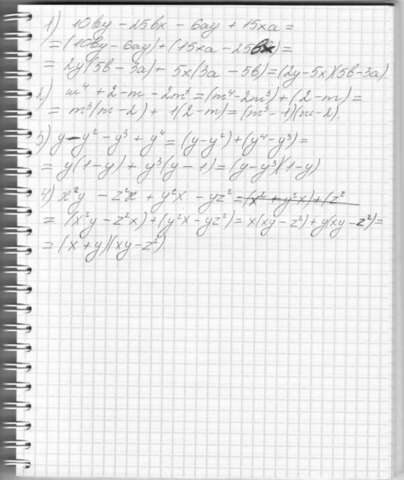 1) 10by - 25bx - 6ay + 15xa =
= (10by - 6ay) + (15xa - 25bx) =
= 2y(5b - 3a) + 5x(3a - 5b) = (2y - 5x)(5b - 3a)
2) m⁴ + 2 - m - 2m³ = (m⁴ - 2m³) + (2 - m) =
= m³(m - 2) + 1(2 - m) = (m³ - 1)(m - 2)
3) y - y² - y³ + y⁴ = (y - y²) + (y⁴ - y³) =
= y(1 - y) + y³(y - 1) = (y - y³)(1 - y)
4) x²y - z²x + y²x - yz² = (x² + y²x) + (z²
= (x²y - z²x) + (y²x - yz²) = x(xy - z²) + y(xy - z²) =
= (x + y)(xy - z²)